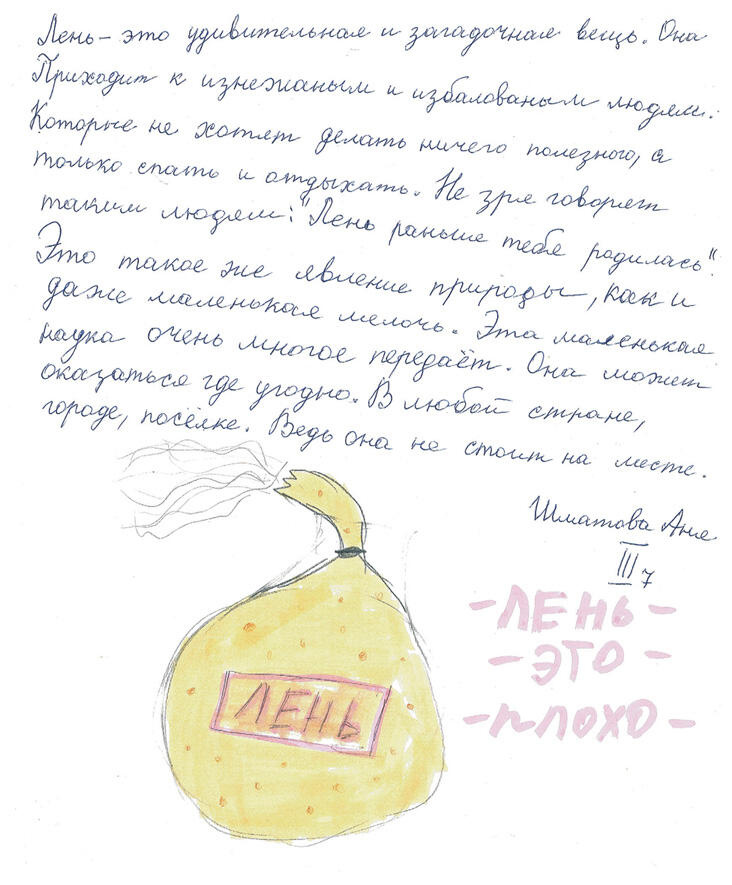 Лень - это удивительная и загадочная вещь. Она
Приходит к изнежаным и избалованым людям.
Которые не хотят делать ничего полезного, а
только спать и отдыхать. Не зря говорят
таким людям: "Лень раньше тебя родилась".
Это такое же явление природы, как и
даже маленькая мелочь. Эта маленькая
наука очень многое передаёт. Она может
оказаться где угодно. В любой стране,
городе, посёлке. Ведь она не стоит на месте.
Шматова Аня
III 7
- ЛЕНЬ -
- ЭТО -
- ПЛОХО -
ЛЕНЬ